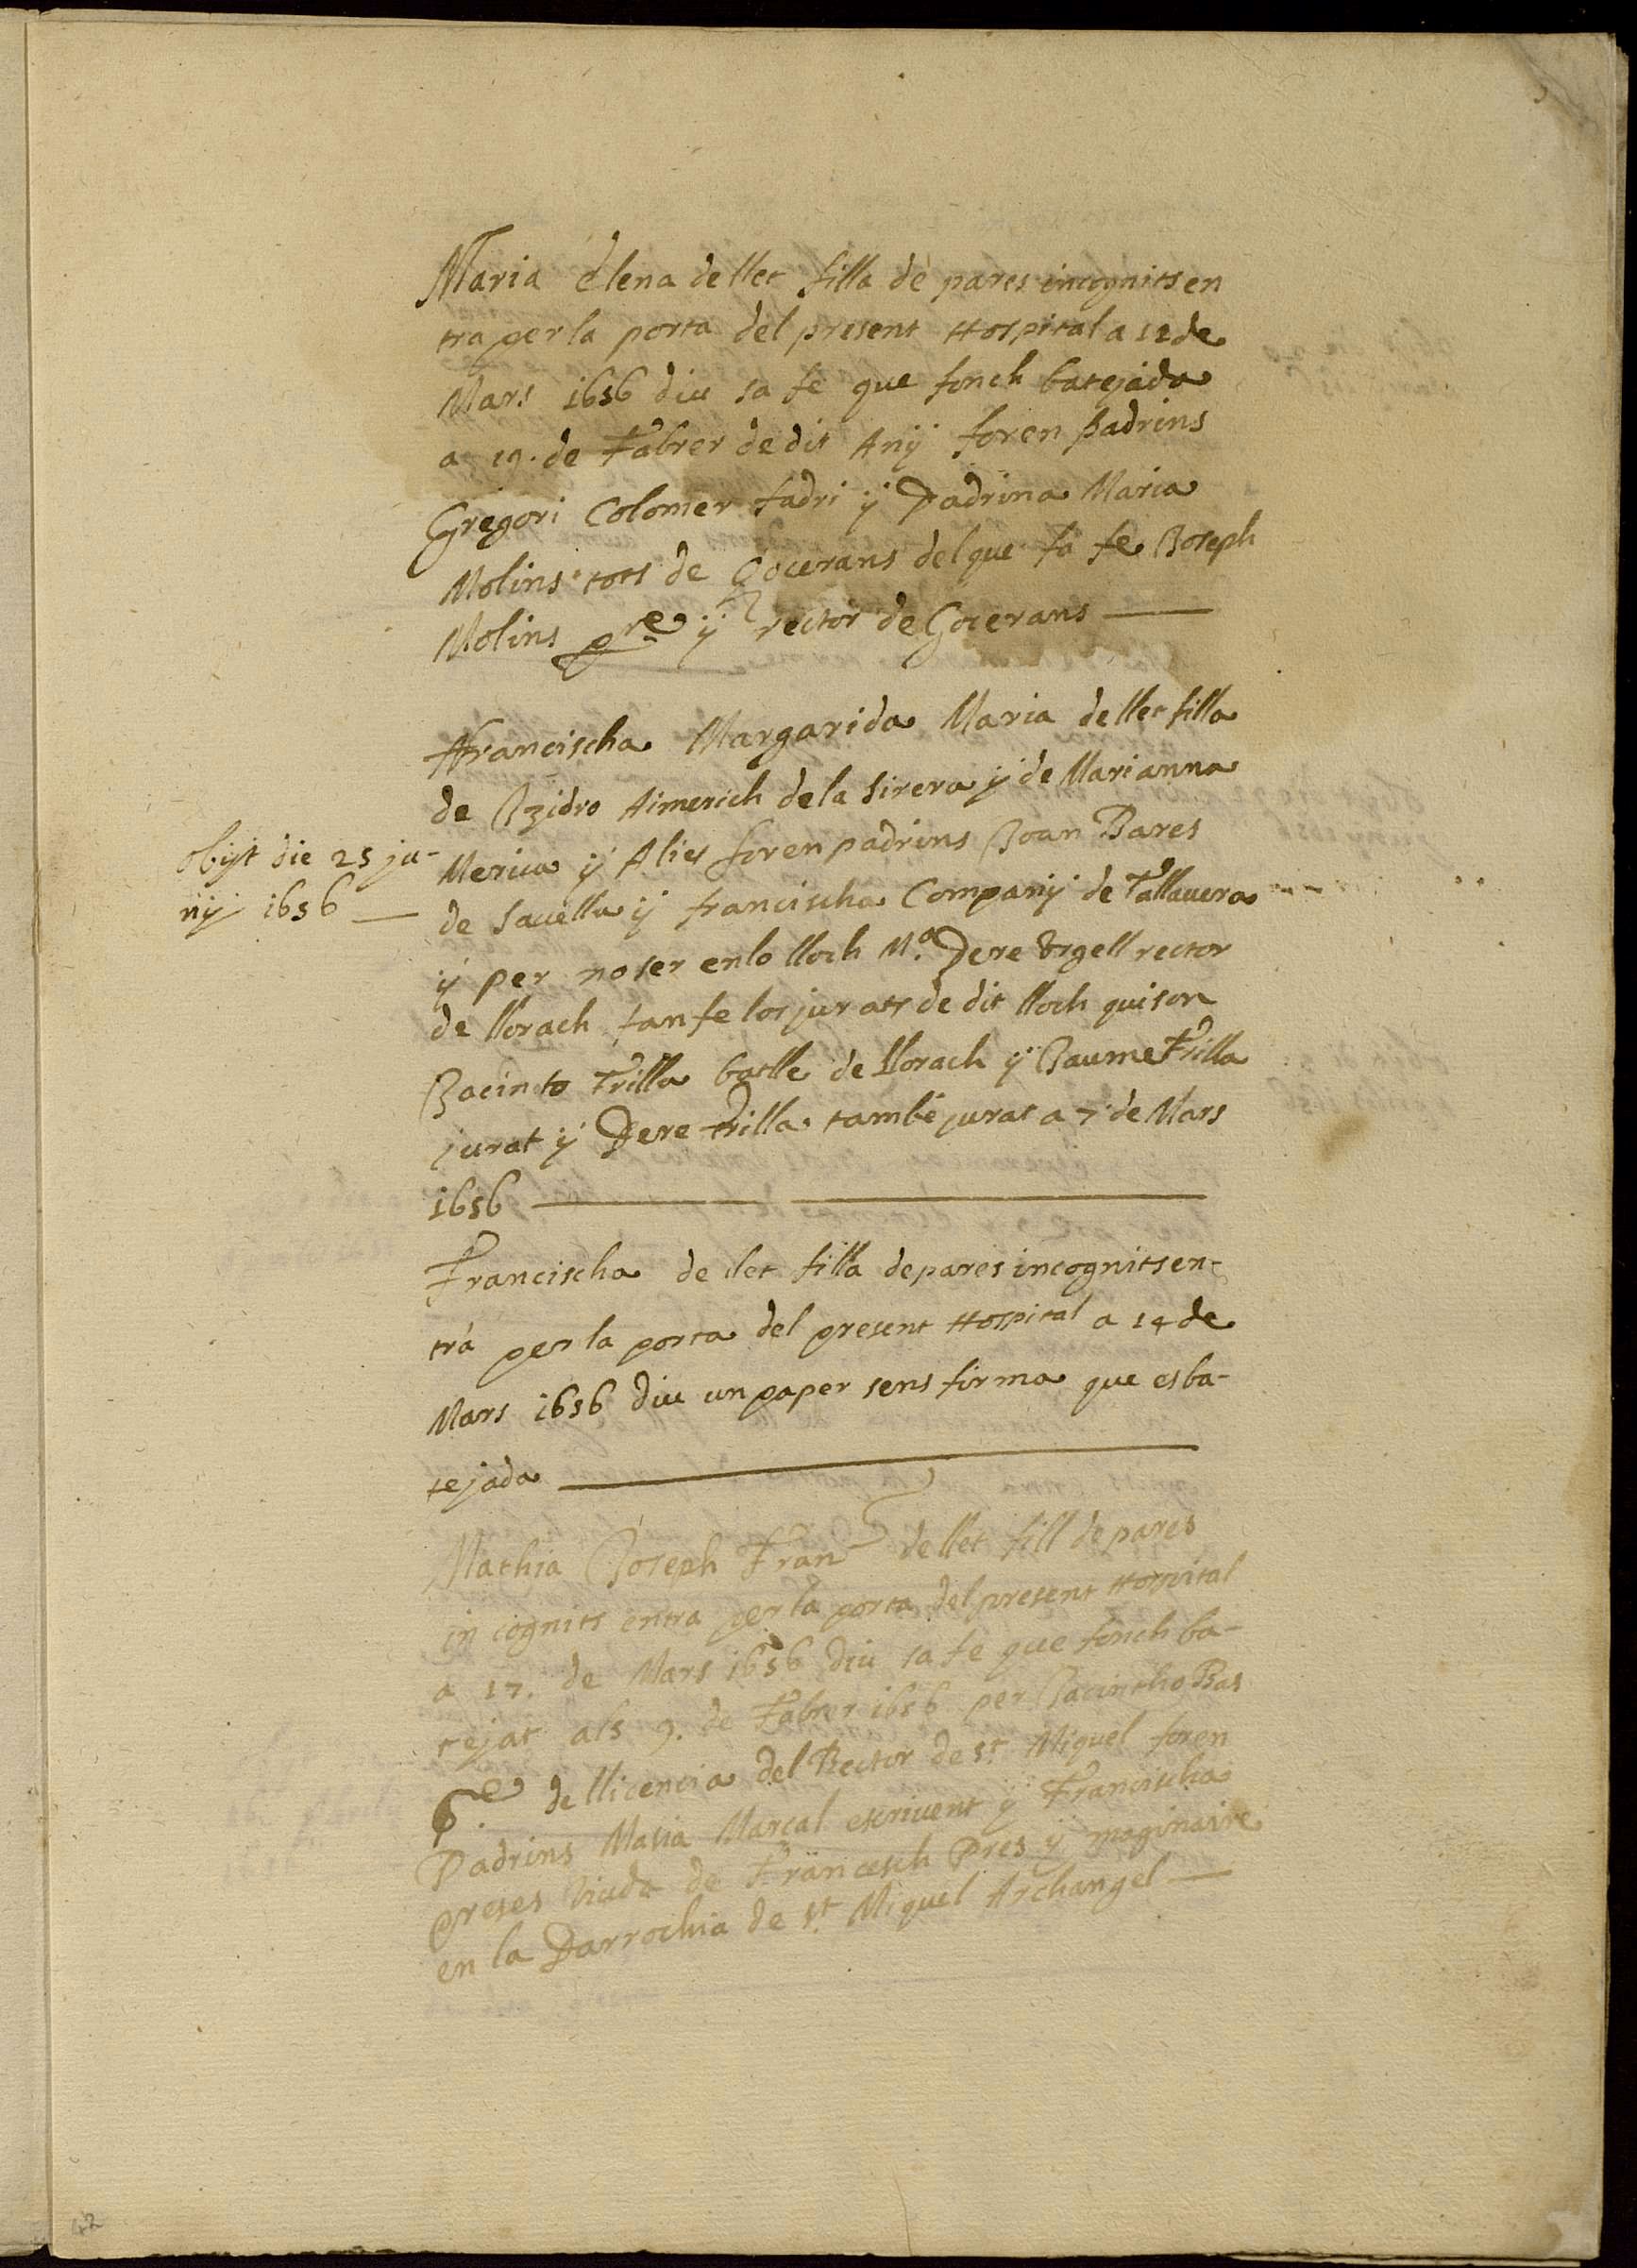 Maria elena de llet filla de pares incognits en
tra per la porta del present Hospital a 12 de
Mars 1656 diu sa fe que fonch batejada
a 19. de Fabrer de dit Anÿ foren padrins
Gregori Colomer fadri ÿ Padrina Maria
Molins tots de Gocerans del que fa fe Joseph
Molins pre ÿ rector de Gocerans
Francischa Margarida Maria de llet filla
de Izidro Aimerich de la Sirera ÿ de Marianna
Meriua ÿ Alies foren padrins Joan Bares
de Sauella ÿ francischa Companÿ de Tallauera
ÿ per no ser en lo lloch Mo. Pere Vrgell rector
de llorach fan fe los jurats de dit lloch qui son
Jacinto Trilla batlle de llorach ÿ Jaume Trilla
jurat ÿ Pere trilla també jurat a 7 de Mars
1656
obijt die 25 ju-
nÿ 1656
Francischa de llet filla de pares incognits en-
tra per la porta del present Hospital a 14 de
Mars 1656 diu un paper sens firma que es ba-
tejada
Mathia Joseph Fran de llet fill de pares
in cognits entra per la porta del present Hospital
a 17. de Mars 1656 diu sa fe que fonch ba-
tejat als 9. de Fabrer 1656 per Jacintho Bas
de llicencia del Rector de St. Miquel foren
Padrins Matia Marçal escriuent ÿ Francischa
preses Viuda de Francesch Pres ÿ maginaire
en la Parrochia de St. Miquel Archangel
42